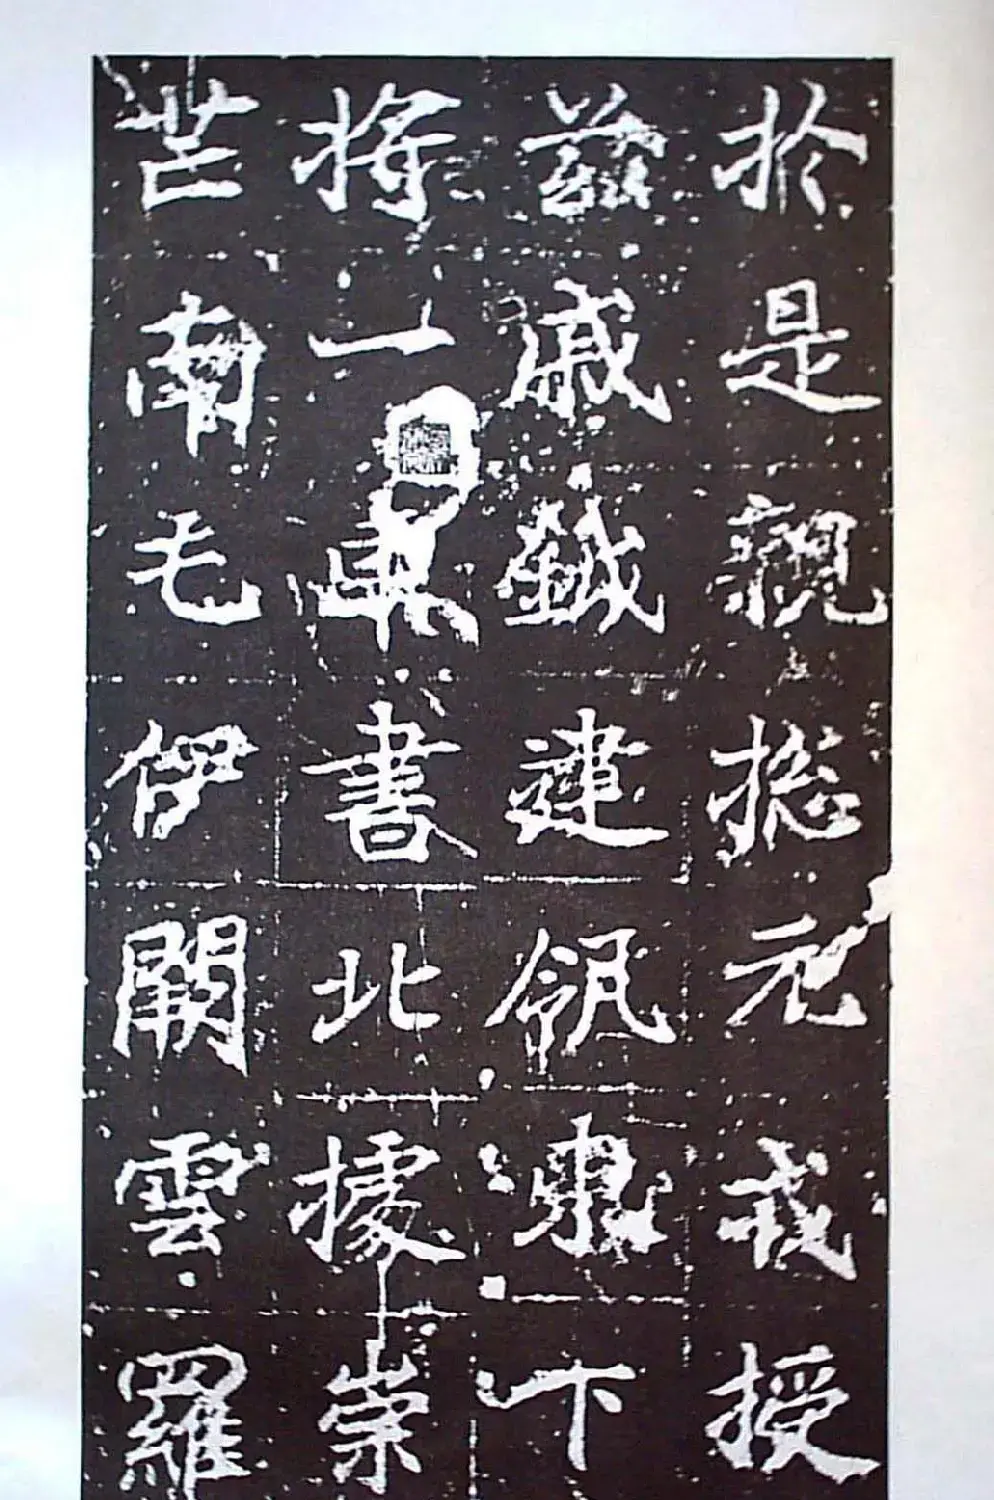 於是親揔元戎授
茲戚鉞建瓴東下
將一車書北據崇
芒南屯伊闕雲羅